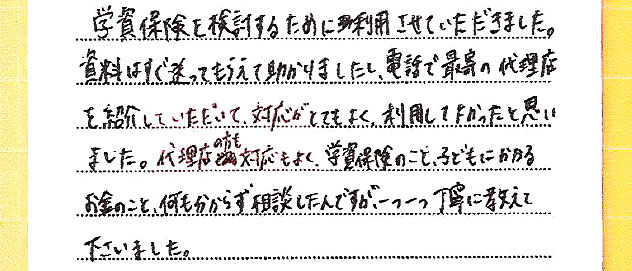 学資保険を検討するために利用させていただきました。
資料はすぐ送ってもらえて助かりましたし、電話で最寄の代理店
を紹介していただいて、対応がとてもよく、利用してよかったと思い
ました。代理店の方も対応もよく、学資保険のこと、子どもにかかる
お金のこと、何も分からず相談したんですが、一つ一つ丁寧に教えて
下さいました。